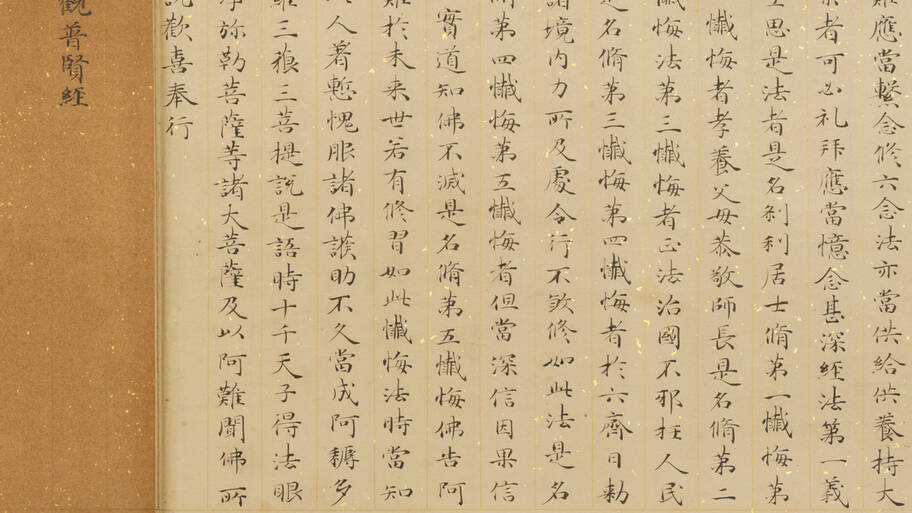 應當繫念修六念法亦當供給供養持大
者可必礼拜應當憶念甚深経法第一義
思是法者是名刹利居士脩第一懺悔第
懺悔者孝養父母恭敬師長是名脩第二
懺悔法第三懺悔者正法治國不邪枉人民
是名脩第三懺悔第四懺悔者於六齊日勅
諸境内力所及處令行不煞修如此法是名
脩第四懺悔第五懺悔者但當深信因果信
實道知佛不滅是名脩第五懺悔佛告阿
難於未来世若有修習如此懺悔法時當知
人著慙愧服諸佛護助不久當成阿耨多
羅三藐三菩提說是語時十千天子得法眼
淨弥勒菩薩等諸大菩薩及以阿難聞佛所
說歡喜奉行
觀普賢経